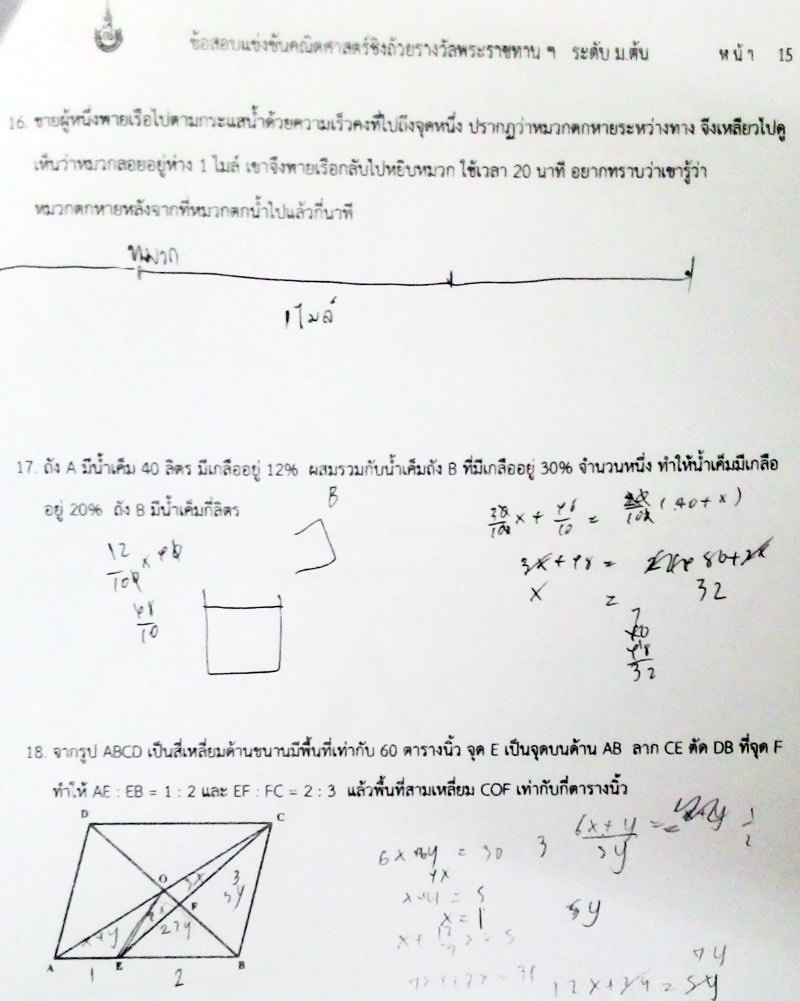 ข้อสอบแข่งขันคณิตศาสตร์ชิงถ้วยรางวัลพระราชทาน ฯ ระดับ ม.ต้น หน้า 15
16. ชายผู้หนึ่งพายเรือไปตามกระแสน้ำด้วยความเร็วคงที่ไปถึงจุดหนึ่ง ปรากฏว่าหมวกตกหายระหว่างทาง จึงเหลียวไปดู
เห็นว่าหมวกลอยอยู่ห่าง 1 ไมล์ เขาจึงพายเรือกลับไปหยิบหมวก ใช้เวลา 20 นาที อยากทราบว่าเขารู้ว่า
หมวกตกหายหลังจากที่หมวกตกน้ำไปแล้วกี่นาที
หมวก
1 ไมล์
17. ถัง A มีน้ำเค็ม 40 ลิตร มีเกลืออยู่ 12% ผสมรวมกับน้ำเค็มถัง B ที่มีเกลืออยู่ 30% จำนวนหนึ่ง ทำให้น้ำเค็มมีเกลือ
อยู่ 20% ถัง B มีน้ำเค็มกี่ลิตร
B
x = 32
18. จากรูป ABCD เป็นสี่เหลี่ยมด้านขนานมีพื้นที่เท่ากับ 60 ตารางนิ้ว จุด E เป็นจุดบนด้าน AB ลาก CE ตัด DB ที่จุด F
ทำให้ AE : EB = 1 : 2 และ EF : FC = 2 : 3 แล้วพื้นที่สามเหลี่ยม COF เท่ากับกี่ตารางนิ้ว
D C
O
F
x+y
A E B
1 2
x = 1
5y